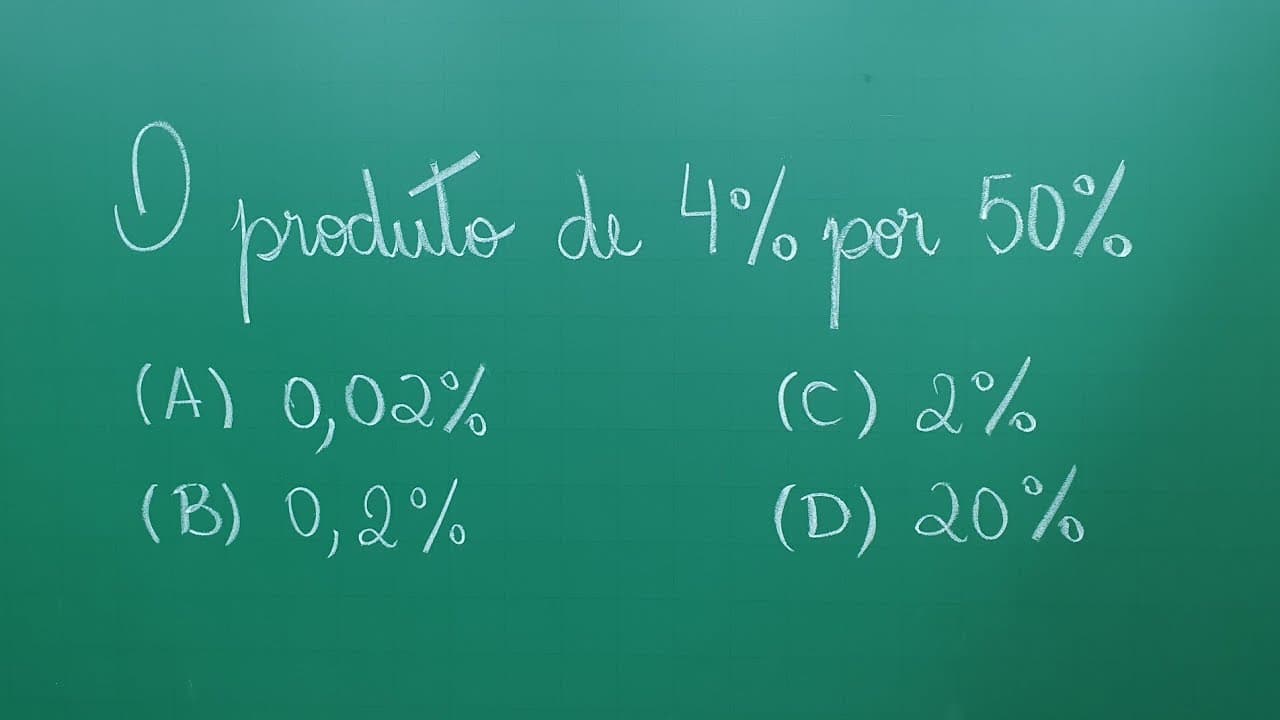 O produto de 4% por 50%
(A) 0,02%
(B) 0,2%
(C) 2%
(D) 20%